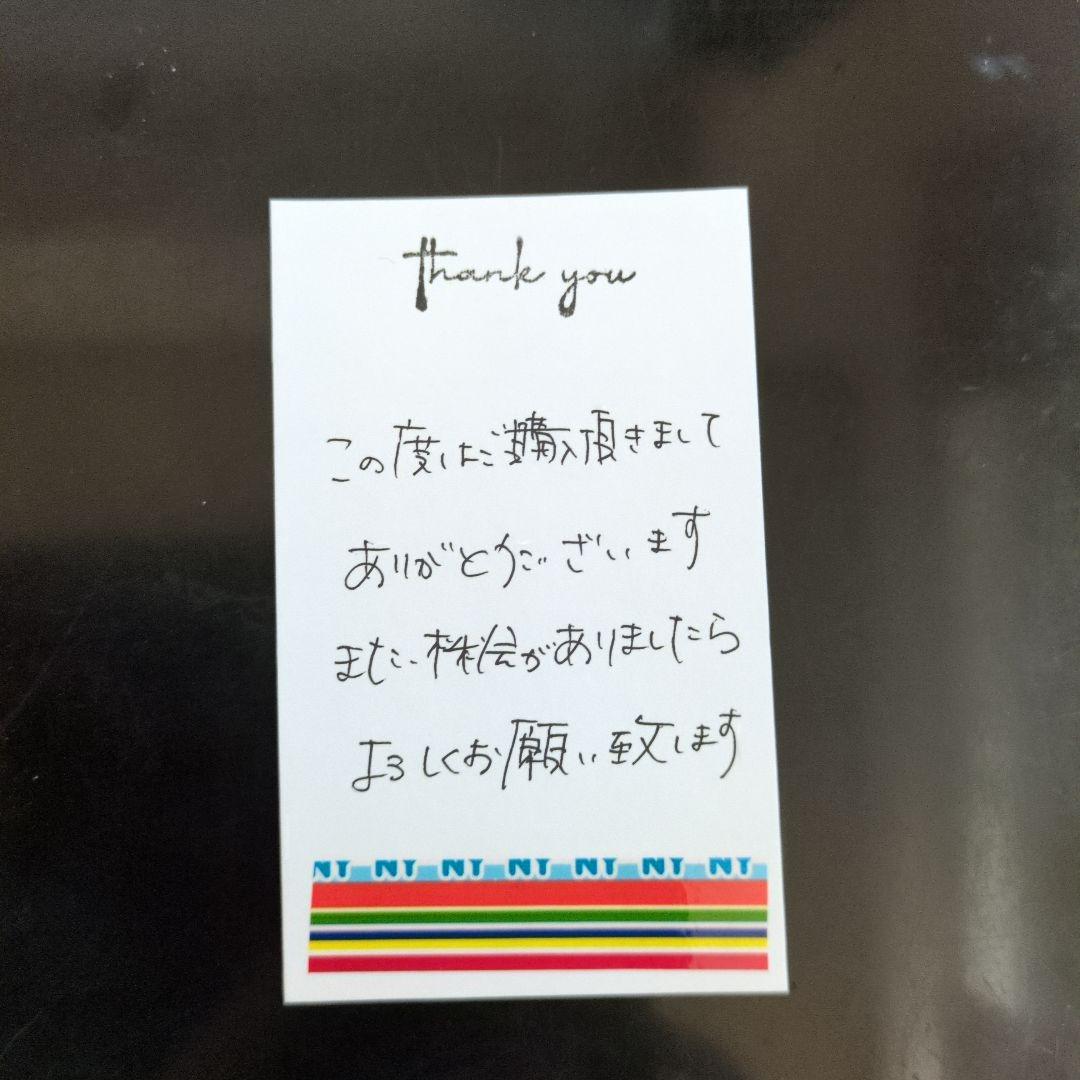 thank you
この度はご購入頂きまして
ありがとうございます
また機会がありましたら
よろしくお願い致します
NT NT NT NT NT NT NT